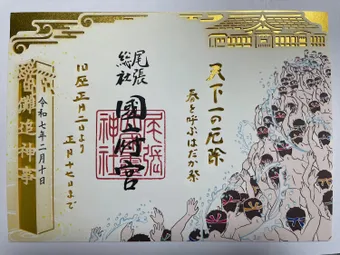 天下一の厄除
春を呼ぶはだか祭
尾張
総社
國府宮
尾張
神社
旧正月二日より
正月十七日まで
儺追神事
令和七年二月十日